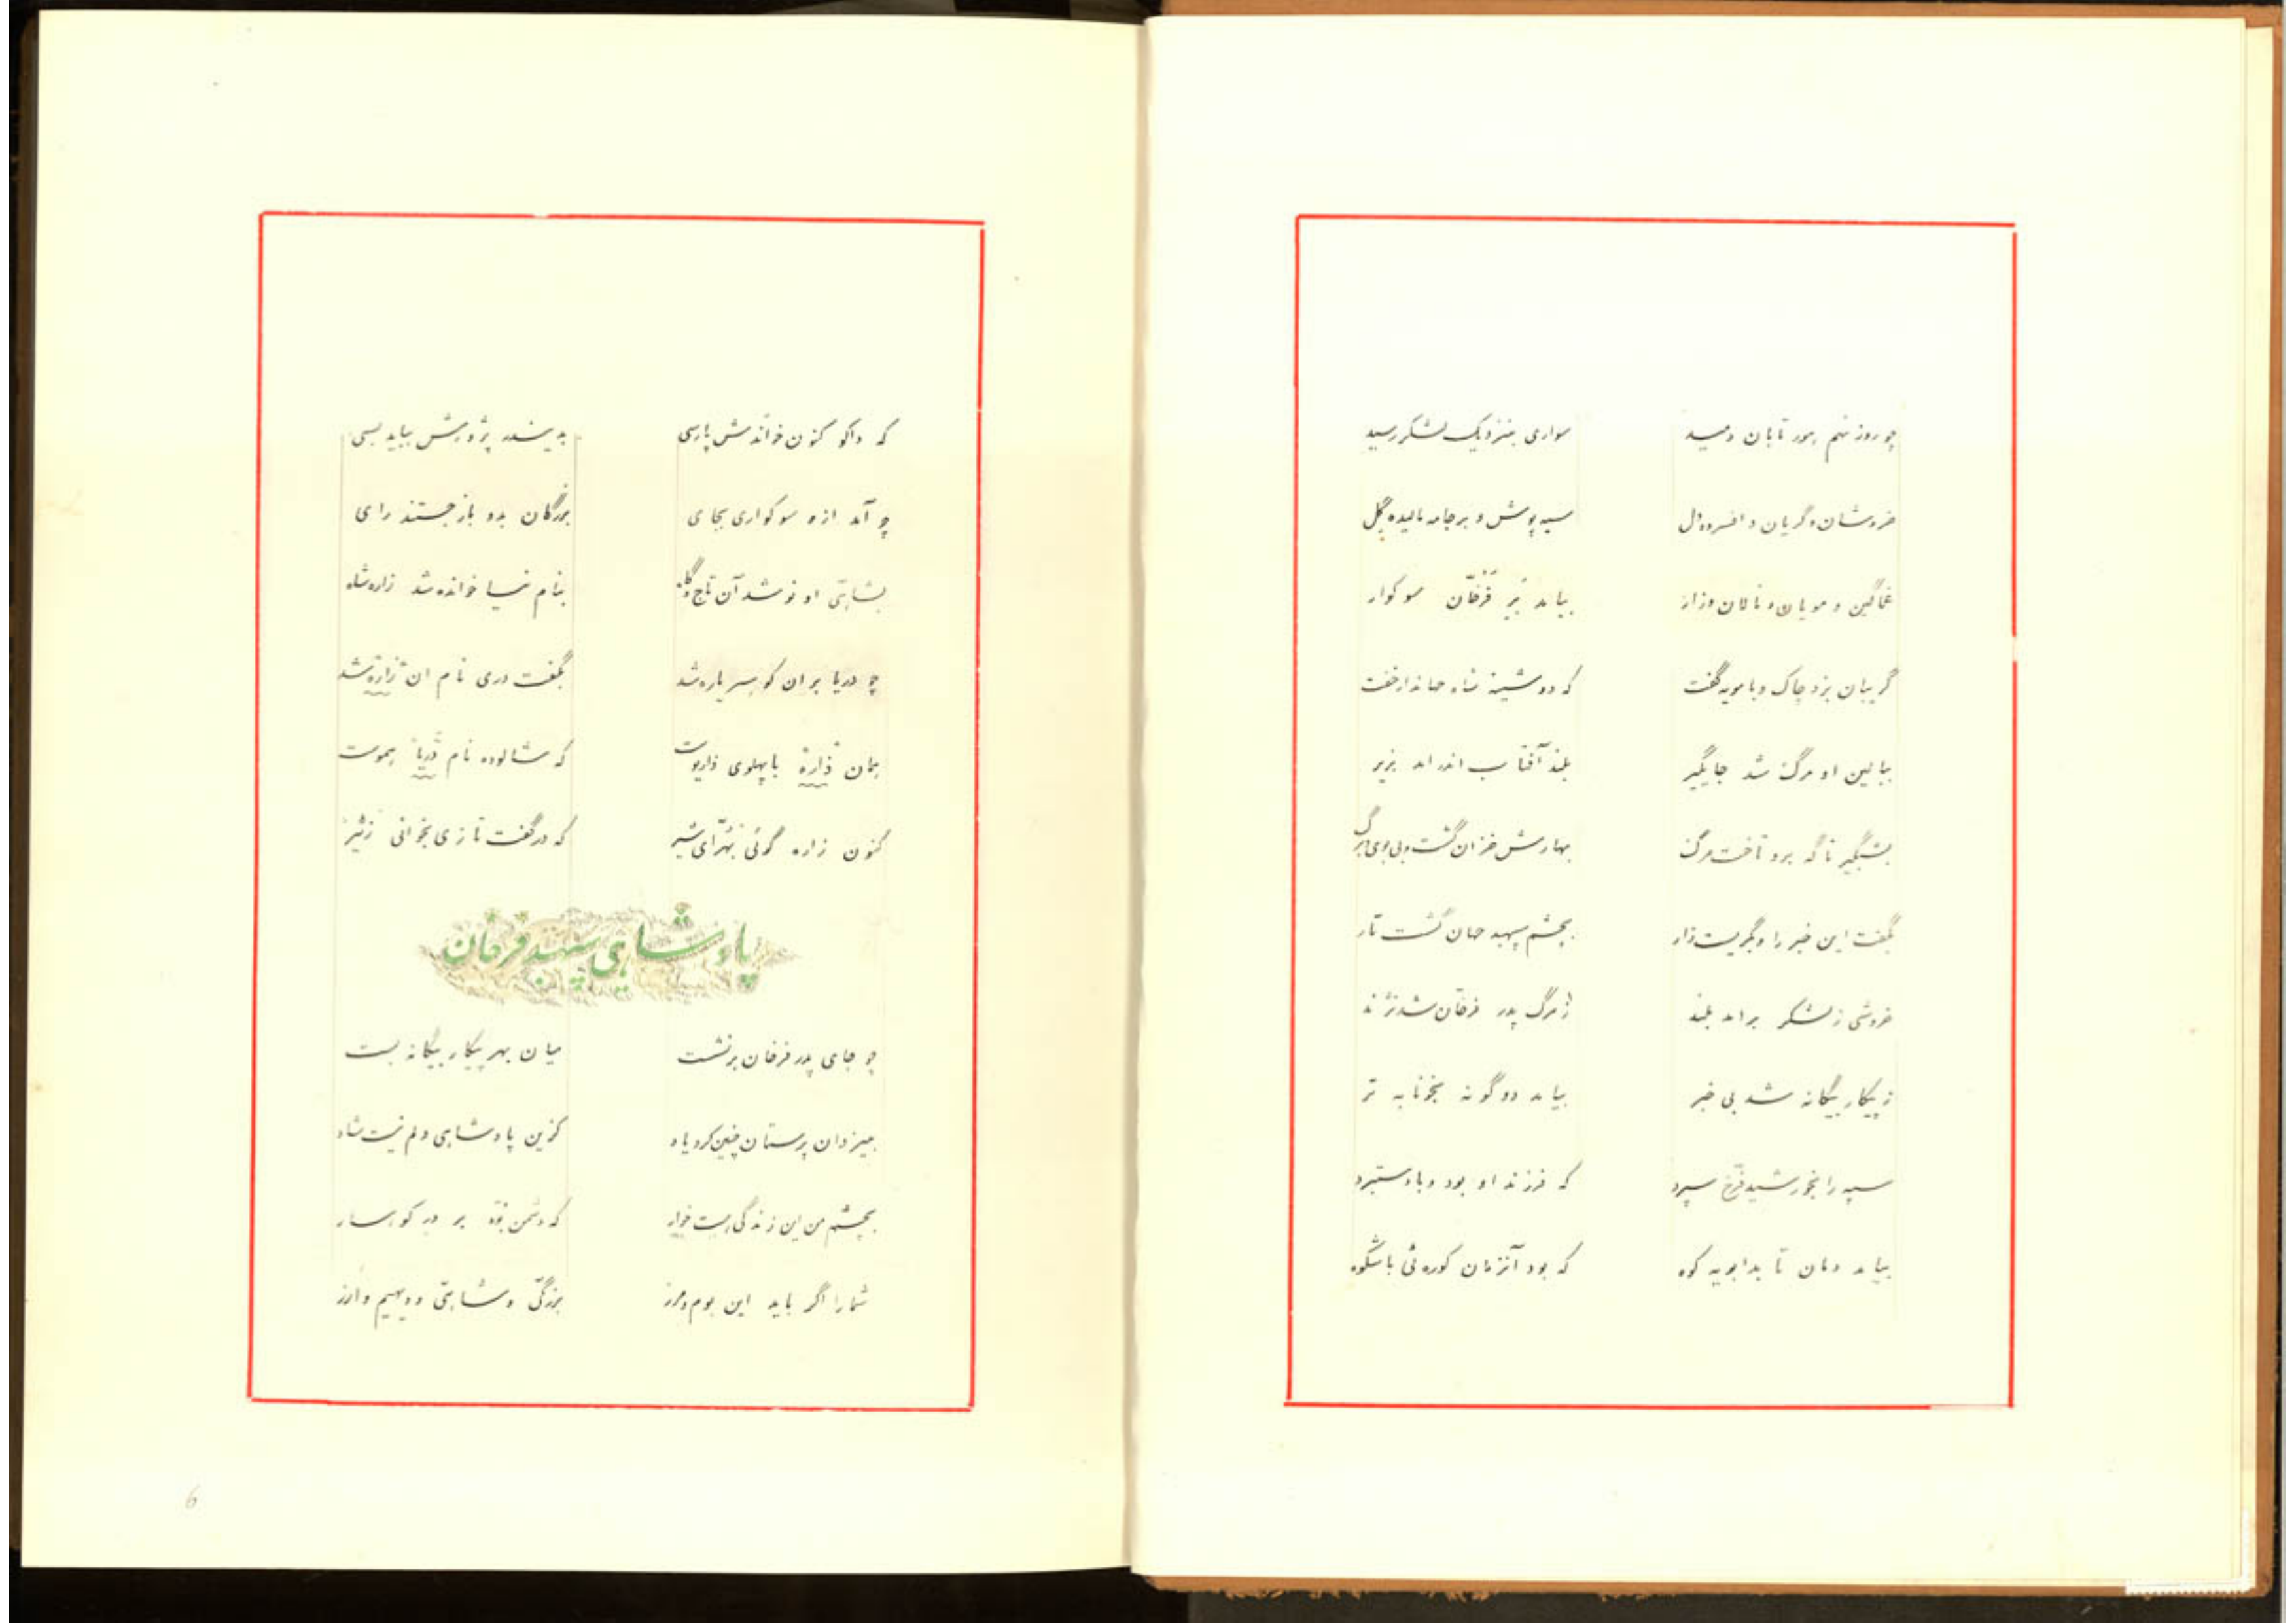 چو روز نهم هور تابان دمید سواری بنزدیک لشکر رسید
خروشان و گریان و افسرده دل سیه پوش و بر جامه مالیده گل
غمگین و مویان و نالان و زار بیامد بر فرخان سوکوار
گریبان بزد چاک و با مویه گفت که دوشینه شاه جهاندار خفت
ببالین او مرگ شد جایگیر بلند آفتاب اندر آمد بزیر
بشبگیر ناگه برو تاخت مرگ بهارش خزان گشت و بی بوی و برگ
بگفت این خبر را و بگریست زار بچشم سپهبد جهان گشت تار
خروشی ز لشکر برآمد بلند ز مرگ پدر فرخان شد نژند
ز پیکار بیگانه شد بی خبر بیامد دو گونه بخونابه تر
سپه را بخورشید فرخ سپرد که فرزند او بود و با دستبرد
بیامد دمان تا بدابویه کوه که بود آنزمان کوره ئی باشکوه
که داکو کنون خواندش پارسی بدینسدر پژوهش بباید بسی
چو آمد ازو سوکواری بجای بزرگان بدو باز جستند رای
بشاهی او نو شد آن تاج و گاه بنام نیا خوانده شد زاره شاه
چو دریا بر آن کوهسر یاره شد بگفت دری نام آن زاره شد
همان ذاره با پهلوی ذاریوست که شالوده نام دریا هموست
کنون زاره گوئی بهرای شیر که در گفت تازی بخوانی زئیر
پادشاهی سپهبد فرخان
چو جای پدر فرخان برنشست میان بهر پیکار بیگانه بست
بیزدان پرستان چنین کرد یاد کزین پادشاهی دلم نیست شاد
بچشم من این زندگی هست خوار که دشمن بود بر در کوهسار
شما را اگر باید این بوم و مرز بزرگی و شاهی و دیهیم و ارز
6